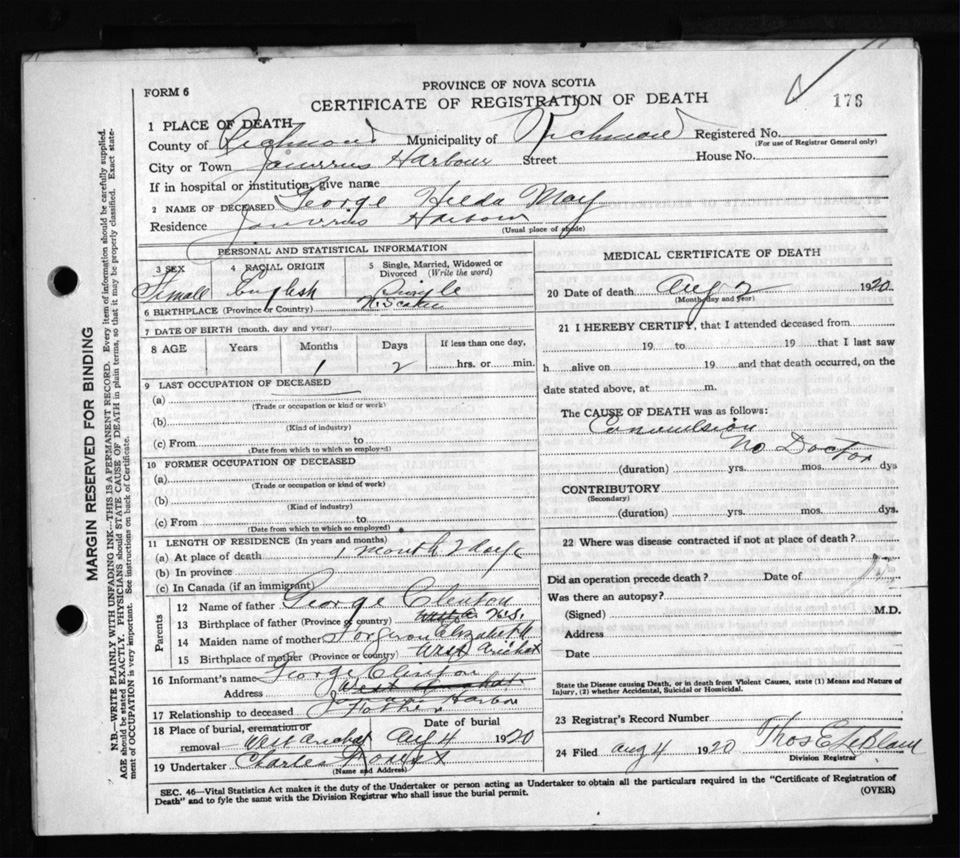 PROVINCE OF NOVA SCOTIA
FORM 6
CERTIFICATE OF REGISTRATION OF DEATH
176
1 PLACE OF DEATH
County of Richmond Municipality of Richmond Registered No.
(For use of Registrar General only)
City or Town Janvrins Harbour Street House No.
If in hospital or institution, give name
2 NAME OF DECEASED George Hilda May
Residence Janvrins Harbour
(Usual place of abode)
PERSONAL AND STATISTICAL INFORMATION
3 SEX 4 RACIAL ORIGIN 5 Single, Married, Widowed or Divorced (Write the word)
Female English Single
6 BIRTHPLACE (Province or Country) N. Scotia
7 DATE OF BIRTH (month, day and year)
8 AGE Years Months Days If less than one day,
1 2 hrs. or min.
9 LAST OCCUPATION OF DECEASED
(a)
(Trade or occupation or kind or work)
(b)
(Kind of industry)
(c) From to
(Date from which to which so employed)
10 FORMER OCCUPATION OF DECEASED
(a)
(Trade or occupation or kind or work)
(b)
(Kind of industry)
(c) From to
(Date from which to which so employed)
11 LENGTH OF RESIDENCE (In years and months)
(a) At place of death 1 month 2 days
(b) In province
(c) In Canada (if an immigrant)
Parents
12 Name of father George Clinton
13 Birthplace of father (Province or country) N.S.
14 Maiden name of mother Forgeron Elizabeth
15 Birthplace of mother (Province or country) West Arichat
16 Informant's name George Clinton
Address West Arichat
Harbor
17 Relationship to deceased Father
18 Place of burial, cremation or removal West Arichat Date of burial Aug 4 1920
19 Undertaker Charles
(Name and Address)
MEDICAL CERTIFICATE OF DEATH
20 Date of death Aug 2 1920
(Month, day and year)
21 I HEREBY CERTIFY, that I attended deceased from
19 to 19 that I last saw
h alive on 19 and that death occurred, on the
date stated above, at m.
The CAUSE OF DEATH was as follows:
Convulsion
No Doctor
(duration) yrs. mos. dys
CONTRIBUTORY
(Secondary)
(duration) yrs. mos. dys.
22 Where was disease contracted if not at place of death?
Did an operation precede death? Date of
Was there an autopsy?
(Signed) M.D.
Address
Date
State the Disease causing Death, or in death from Violent Causes, state (1) Means and Nature of Injury, (2) whether Accidental, Suicidal or Homicidal.
23 Registrar's Record Number
24 Filed Aug 4 1920 Thos E LeBlanc
Division Registrar
SEC. 46—Vital Statistics Act makes it the duty of the Undertaker or person acting as Undertaker to obtain all the particulars required in the "Certificate of Registration of
Death" and to fyle the same with the Division Registrar who shall issue the burial permit. (OVER)
MARGIN RESERVED FOR BINDING
N.B.—WRITE PLAINLY WITH UNFADING INK—THIS IS A PERMANENT RECORD. Every item of information should be carefully supplied.
AGE should be stated EXACTLY. PHYSICIANS should STATE CAUSE OF DEATH in plain terms, so that it may be properly classified. Exact state-
ment of OCCUPATION is very important. See instructions on back of Certificate.